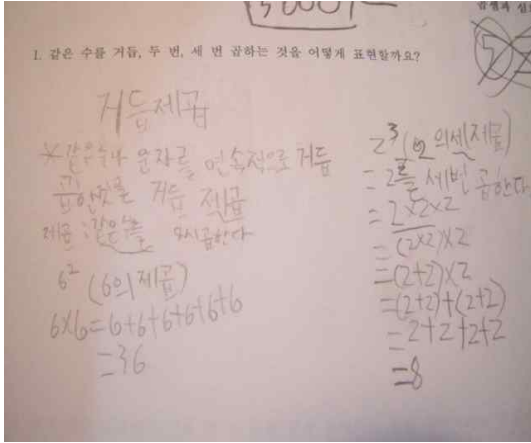 5000
1. 같은 수를 거듭, 두 번, 세 번 곱하는 것을 어떻게 표현할까요?
거듭제곱
※같은수나 문자를 연속적으로 거듭
곱한것을 거듭 제곱
제곱 :같은수를 다시곱한다
6² (6의제곱)
6×6=6+6+6+6+6+6
=36
2³(2의세제곱)
=2를 세번 곱한다
=2×2×2
=(2×2)×2
=(2+2)×2
=(2+2)+(2+2)
=2+2+2+2
=8